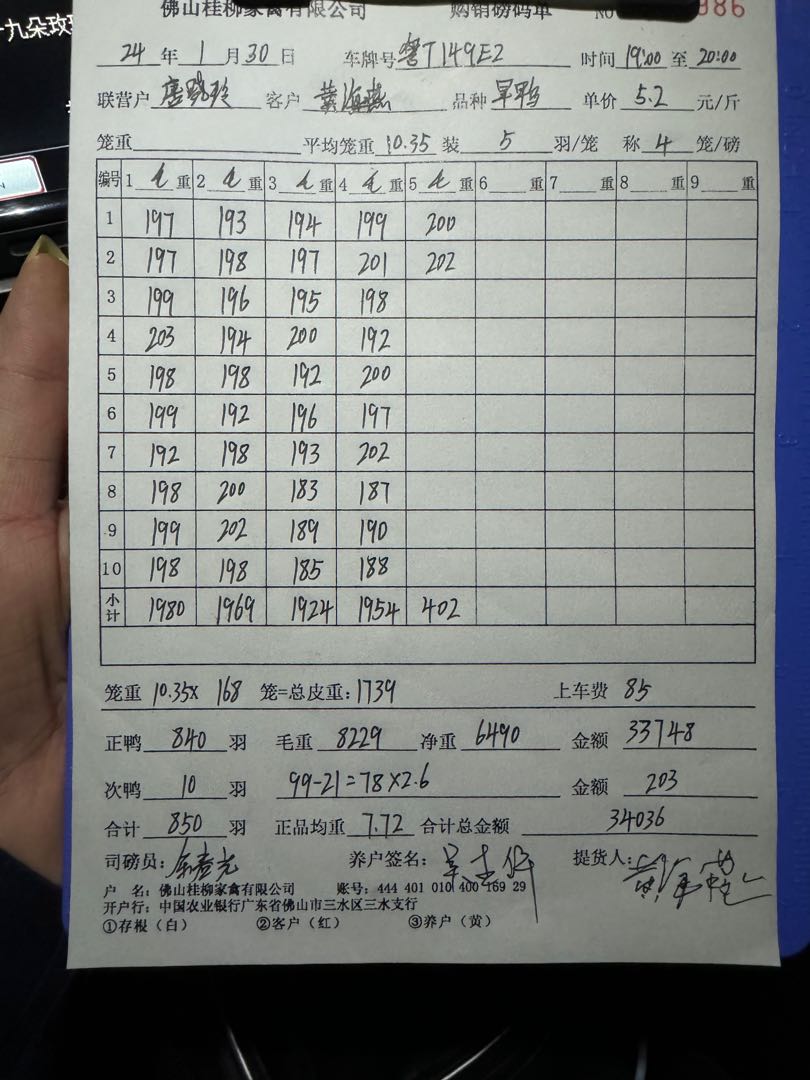 九朵玫
佛山桂柳家禽有限公司 购销磅码单 NO 986
24 年 1 月 30 日 车牌号 粤T149E2 时间 19:00 至 20:00
联营户 唐晓玲 客户 黄海燕 品种 旱鸭 单价 5.2 元/斤
笼重 平均笼重 10.35 装 5 羽/笼 称 4 笼/磅
编号 1 毛 重 2 毛 重 3 毛 重 4 毛 重 5 毛 重 6 重 7 重 8 重 9 重
1 197 193 194 199 200
2 197 198 197 201 202
3 199 196 195 198
4 203 194 200 192
5 198 198 192 200
6 199 192 196 197
7 192 198 193 202
8 198 200 183 187
9 199 202 189 190
10 198 198 185 188
小计 1980 1969 1924 1954 402
笼重 10.35X 168 笼=总皮重: 1739 上车费 85
正鸭 840 羽 毛重 8229 净重 6490 金额 33748
次鸭 10 羽 99-21=78X2.6 金额 203
合计 850 羽 正品均重 7.72 合计总金额 34036
司磅员: 养户签名: 提货人:
户 名: 佛山桂柳家禽有限公司 账号: 444 401 010 400 169 29
开户行: 中国农业银行广东省佛山市三水区三水支行
①存根(白) ②客户(红) ③养户(黄)